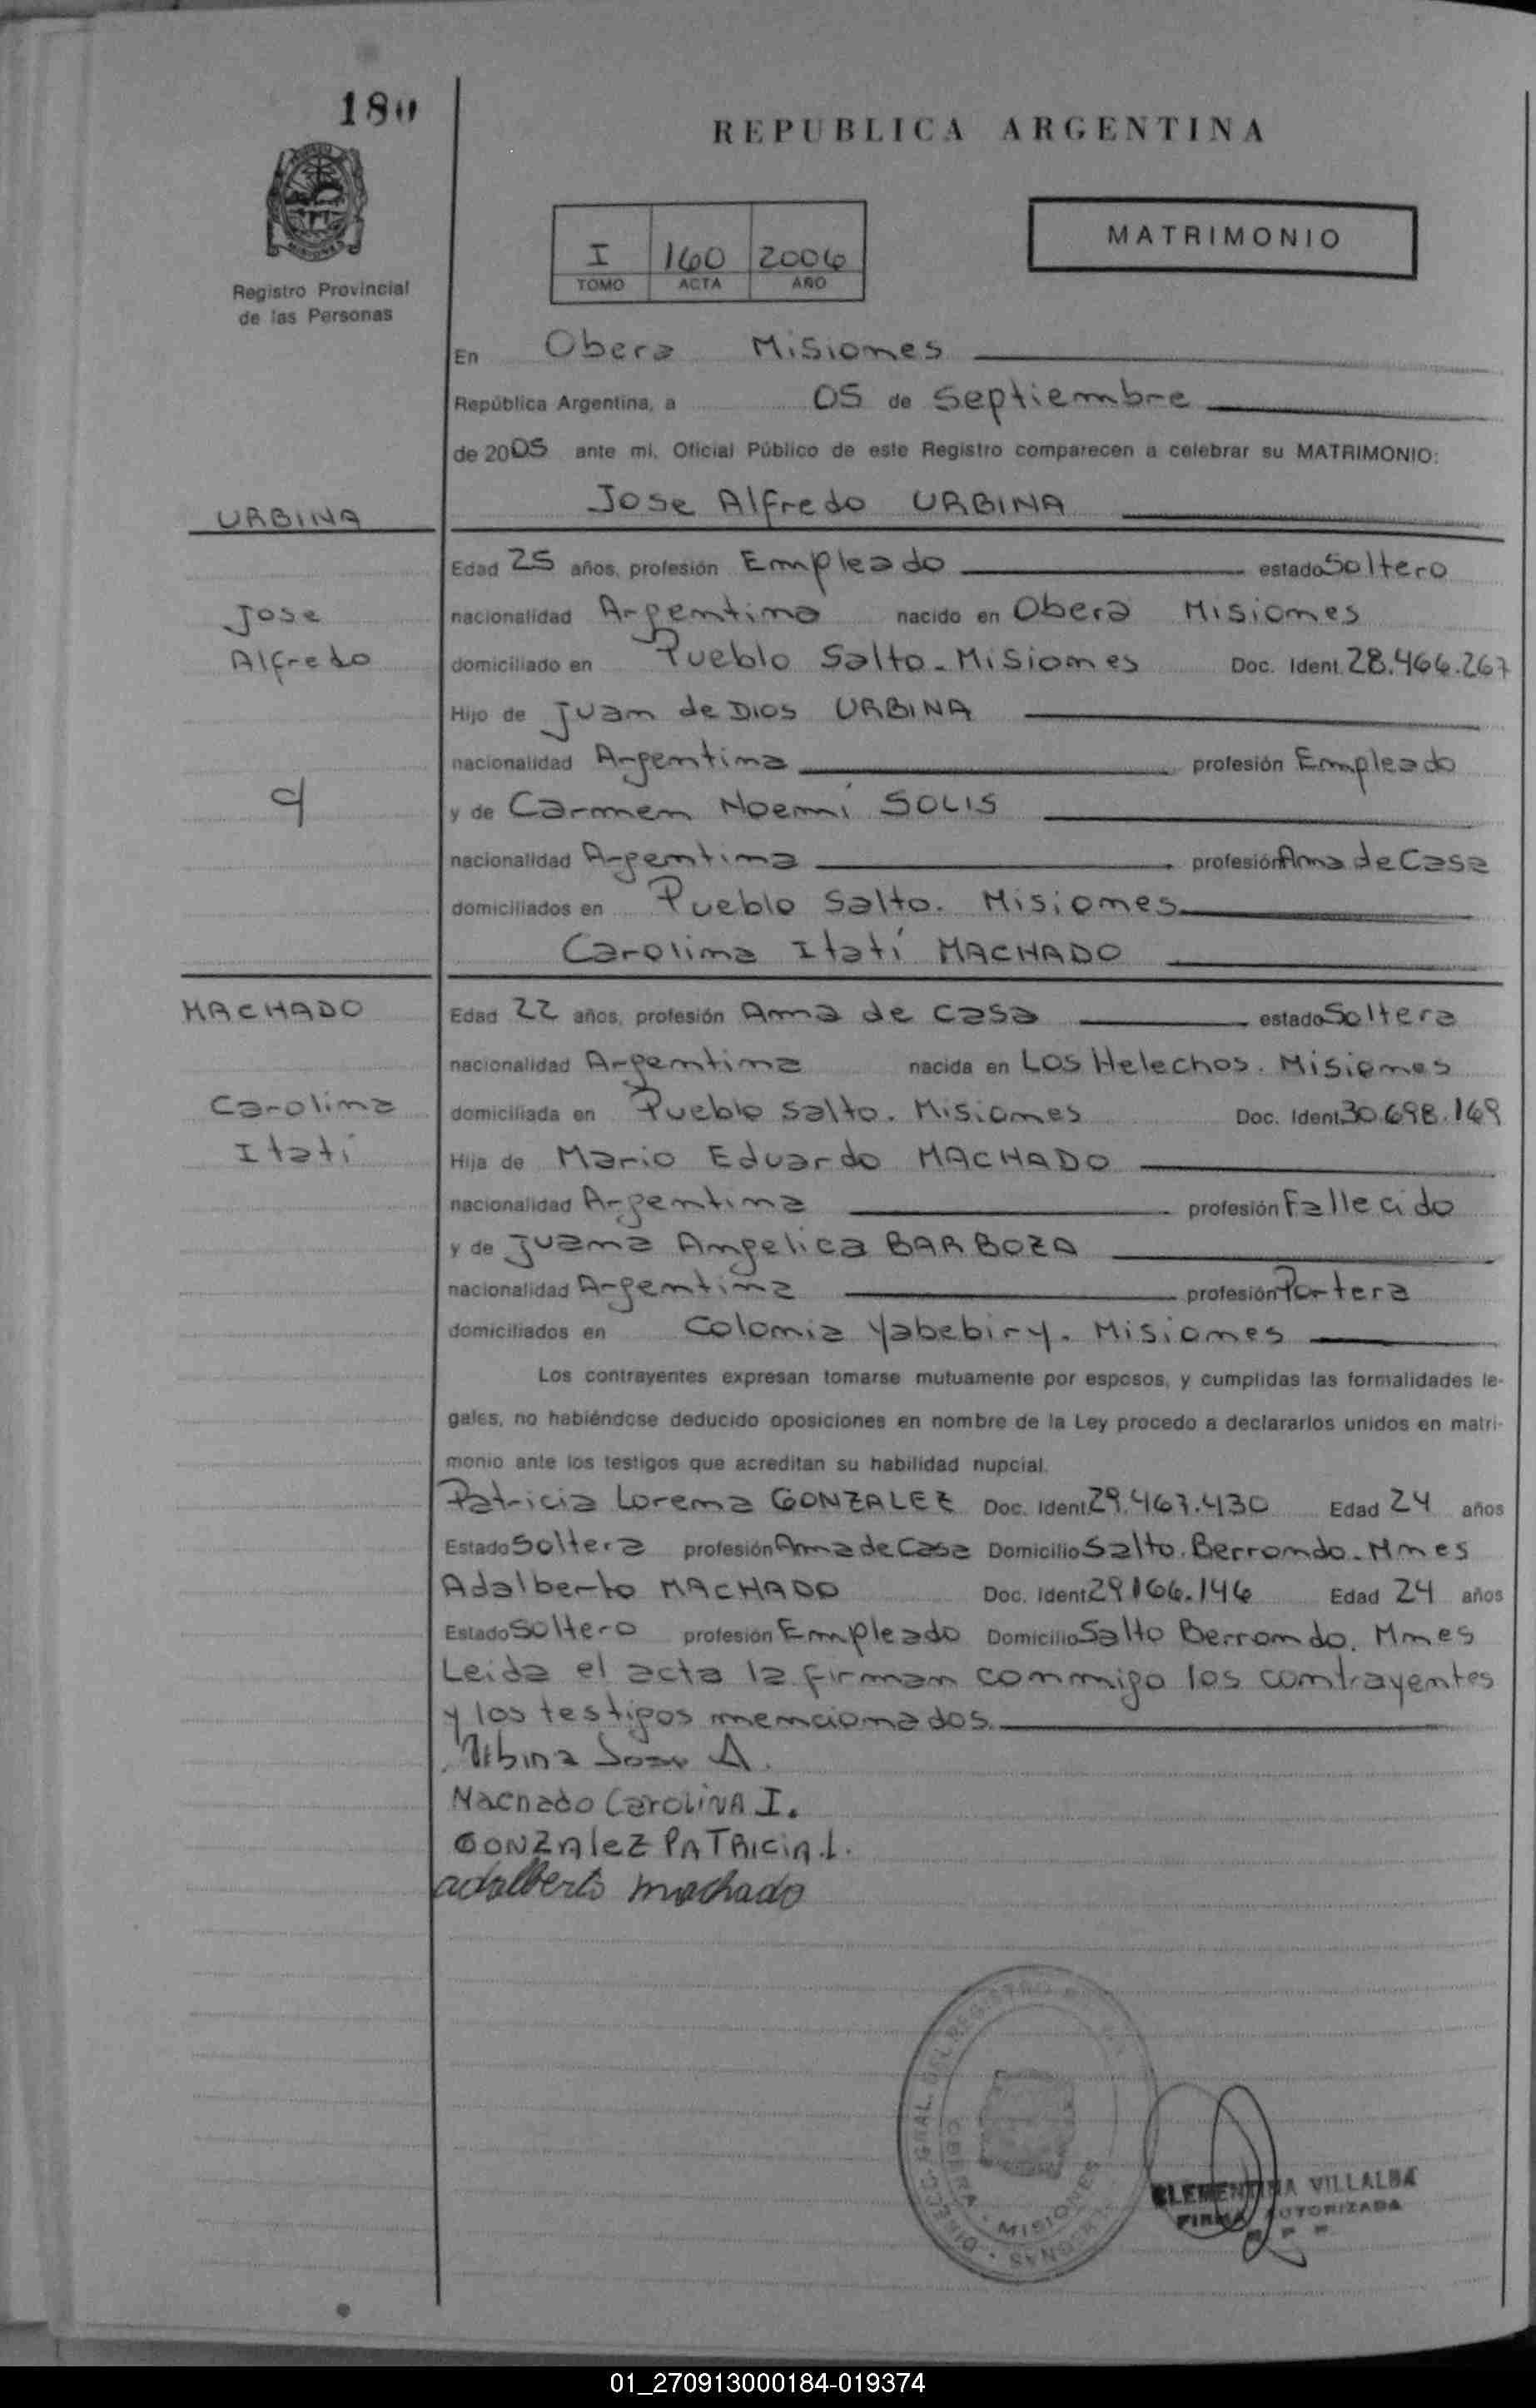 180
REPUBLICA ARGENTINA
MATRIMONIO
I 160 2006
TOMO ACTA AÑO
Registro Provincial
de las Personas
En Obera Misiones
República Argentina, a 05 de Septiembre
de 2005 ante mí, Oficial Público de este Registro comparecen a celebrar su MATRIMONIO:
URBINA
Jose Alfredo URBINA
Edad 25 años, profesión Empleado estado Soltero
Jose
nacionalidad Argentina nacido en Obera Misiones
Alfredo
domiciliado en Pueblo Salto - Misiones Doc. Ident. 28.466.267
Hijo de Juan de Dios URBINA
nacionalidad Argentina profesión Empleado
y de Carmen Noemí SOLIS
nacionalidad Argentina profesión Ama de Casa
domiciliados en Pueblo Salto. Misiones
Carolina Itatí MACHADO
MACHADO
Edad 22 años, profesión Ama de Casa estado Soltera
nacionalidad Argentina nacida en Los Helechos. Misiones
Carolina
domiciliada en Pueblo Salto. Misiones Doc. Ident. 30.698.169
Itatí
Hija de Mario Eduardo MACHADO
nacionalidad Argentina profesión Fallecido
y de Juana Angelica BARBOZA
nacionalidad Argentina profesión Portera
domiciliados en Colonia Yabebiry. Misiones
Los contrayentes expresan tomarse mutuamente por esposos, y cumplidas las formalidades le-
gales, no habiéndose deducido oposiciones en nombre de la Ley procedo a declararlos unidos en matri-
monio ante los testigos que acreditan su habilidad nupcial.
Patricia Lorena GONZALEZ Doc. Ident. 29.467.430 Edad 24 años
Estado Soltera profesión Ama de Casa Domicilio Salto. Berrondo. Mnes
Adalberto MACHADO Doc. Ident. 29166.146 Edad 24 años
Estado Soltero profesión Empleado Domicilio Salto Berrondo. Mnes
Leida el acta la firman conmigo los contrayentes
y los testigos mencionados.
Urbina Jose A.
Machado CArolinA I.
GONZAleZ PATRICiA.L.
adalberto machado
OBERA - MISIONES
CLEMENTINA VILLALBA
FIRMA AUTORIZADA
01_270913000184-019374